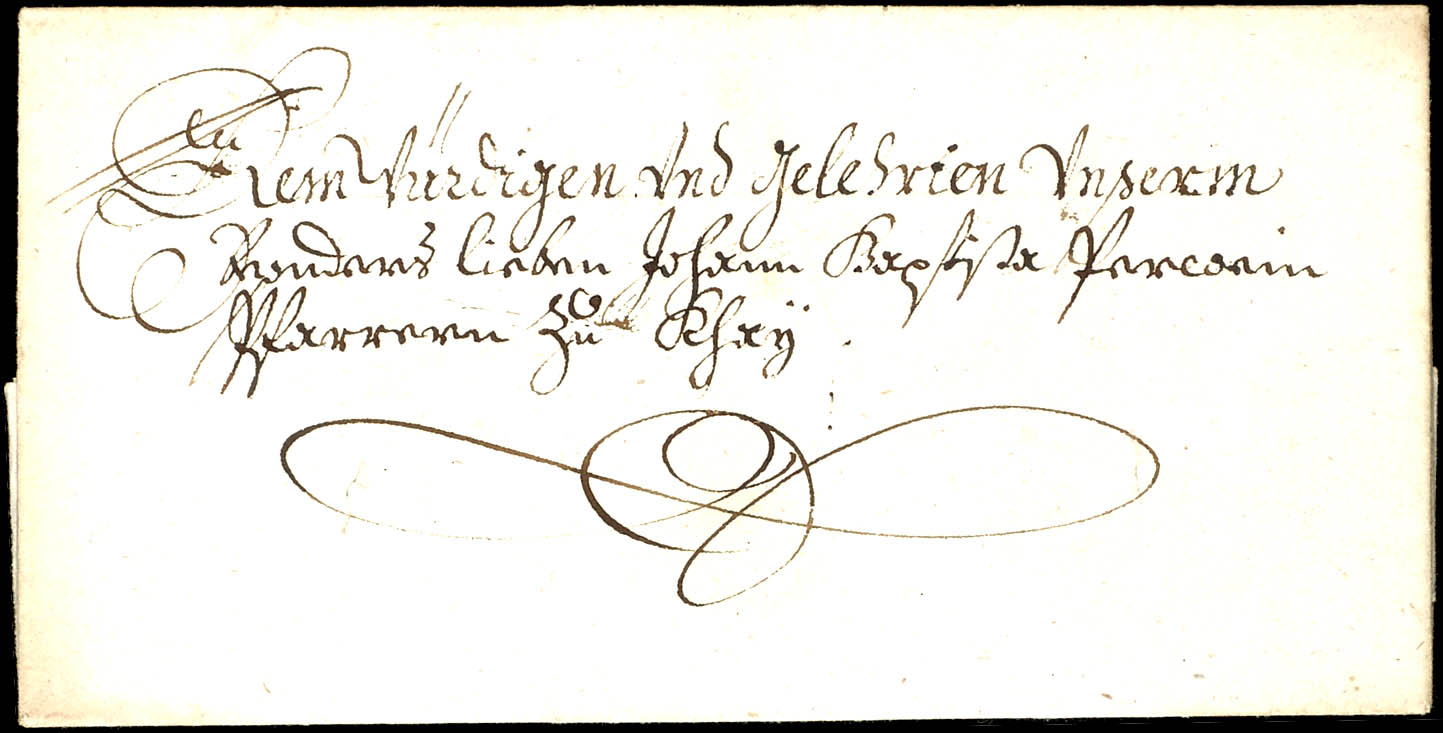 Dem Würdigen Vnd Gelehrten Vnserm
Besonders lieben Johann Baptista
Pfarrern zu Khay.